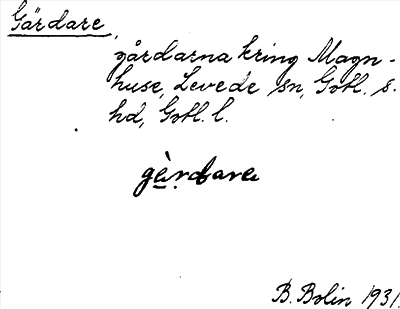 Gärdare,
gårdarna kring Magn-
huse, Levede sn, Gotl. s.
hd, Gotl. l.
gèrdara
B. Bolin 1931.